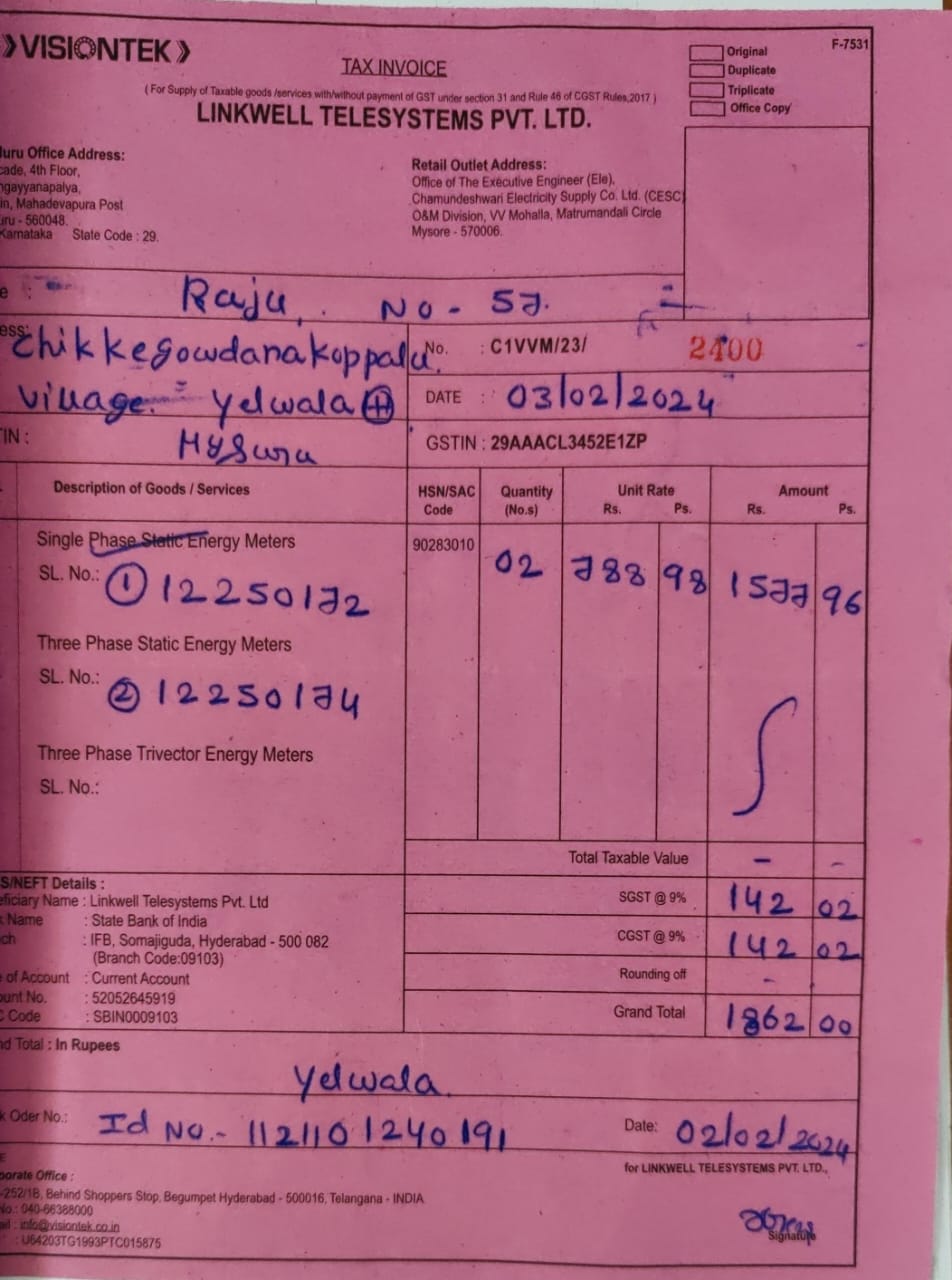 VISIONTEK
F-7531
TAX INVOICE
Original
Duplicate
Triplicate
Office Copy
( For Supply of Taxable goods /services with/without payment of GST under section 31 and Rule 46 of CGST Rules,2017 )
LINKWELL TELESYSTEMS PVT. LTD.
uru Office Address:
cade, 4th Floor,
ngayyanapalya,
in, Mahadevapura Post
uru - 560048.
Karnataka State Code : 29.
Retail Outlet Address:
Office of The Executive Engineer (Ele),
Chamundeshwari Electricity Supply Co. Ltd. (CESC)
O&M Division, VV Mohalla, Matrumandali Circle
Mysore - 570006.
e : Raju, No - 57.
ess: Chikkegowdanakoppalu,
Village. Yelwala
Mysuru
No. : C1VVM/23/ 2400
DATE : 03/02/2024
TIN :
GSTIN : 29AAACL3452E1ZP
Description of Goods / Services HSN/SAC Code Quantity (No.s) Unit Rate Rs. Ps. Amount Rs. Ps.
Single Phase Static Energy Meters 90283010 02 788 98 1577 96
SL. No.: ① 12250172
Three Phase Static Energy Meters
SL. No.: ② 12250174
Three Phase Trivector Energy Meters
SL. No.:
Total Taxable Value - -
SGST @ 9% 142 02
CGST @ 9% 142 02
Rounding off -
Grand Total 1862 00
S/NEFT Details :
eficiary Name : Linkwell Telesystems Pvt. Ltd
k Name : State Bank of India
ch : IFB, Somajiguda, Hyderabad - 500 082
(Branch Code:09103)
e of Account : Current Account
ount No. : 52052645919
C Code : SBIN0009103
nd Total : In Rupees
Yelwala
k Oder No.: Id No.- 1121101240191 Date: 02/02/2024
for LINKWELL TELESYSTEMS PVT. LTD.,
porate Office :
-252/1B, Behind Shoppers Stop, Begumpet Hyderabad - 500016, Telangana - INDIA
No.: 040-66388000
ail : info@visiontek.co.in
: U64203TG1993PTC015875
Signature